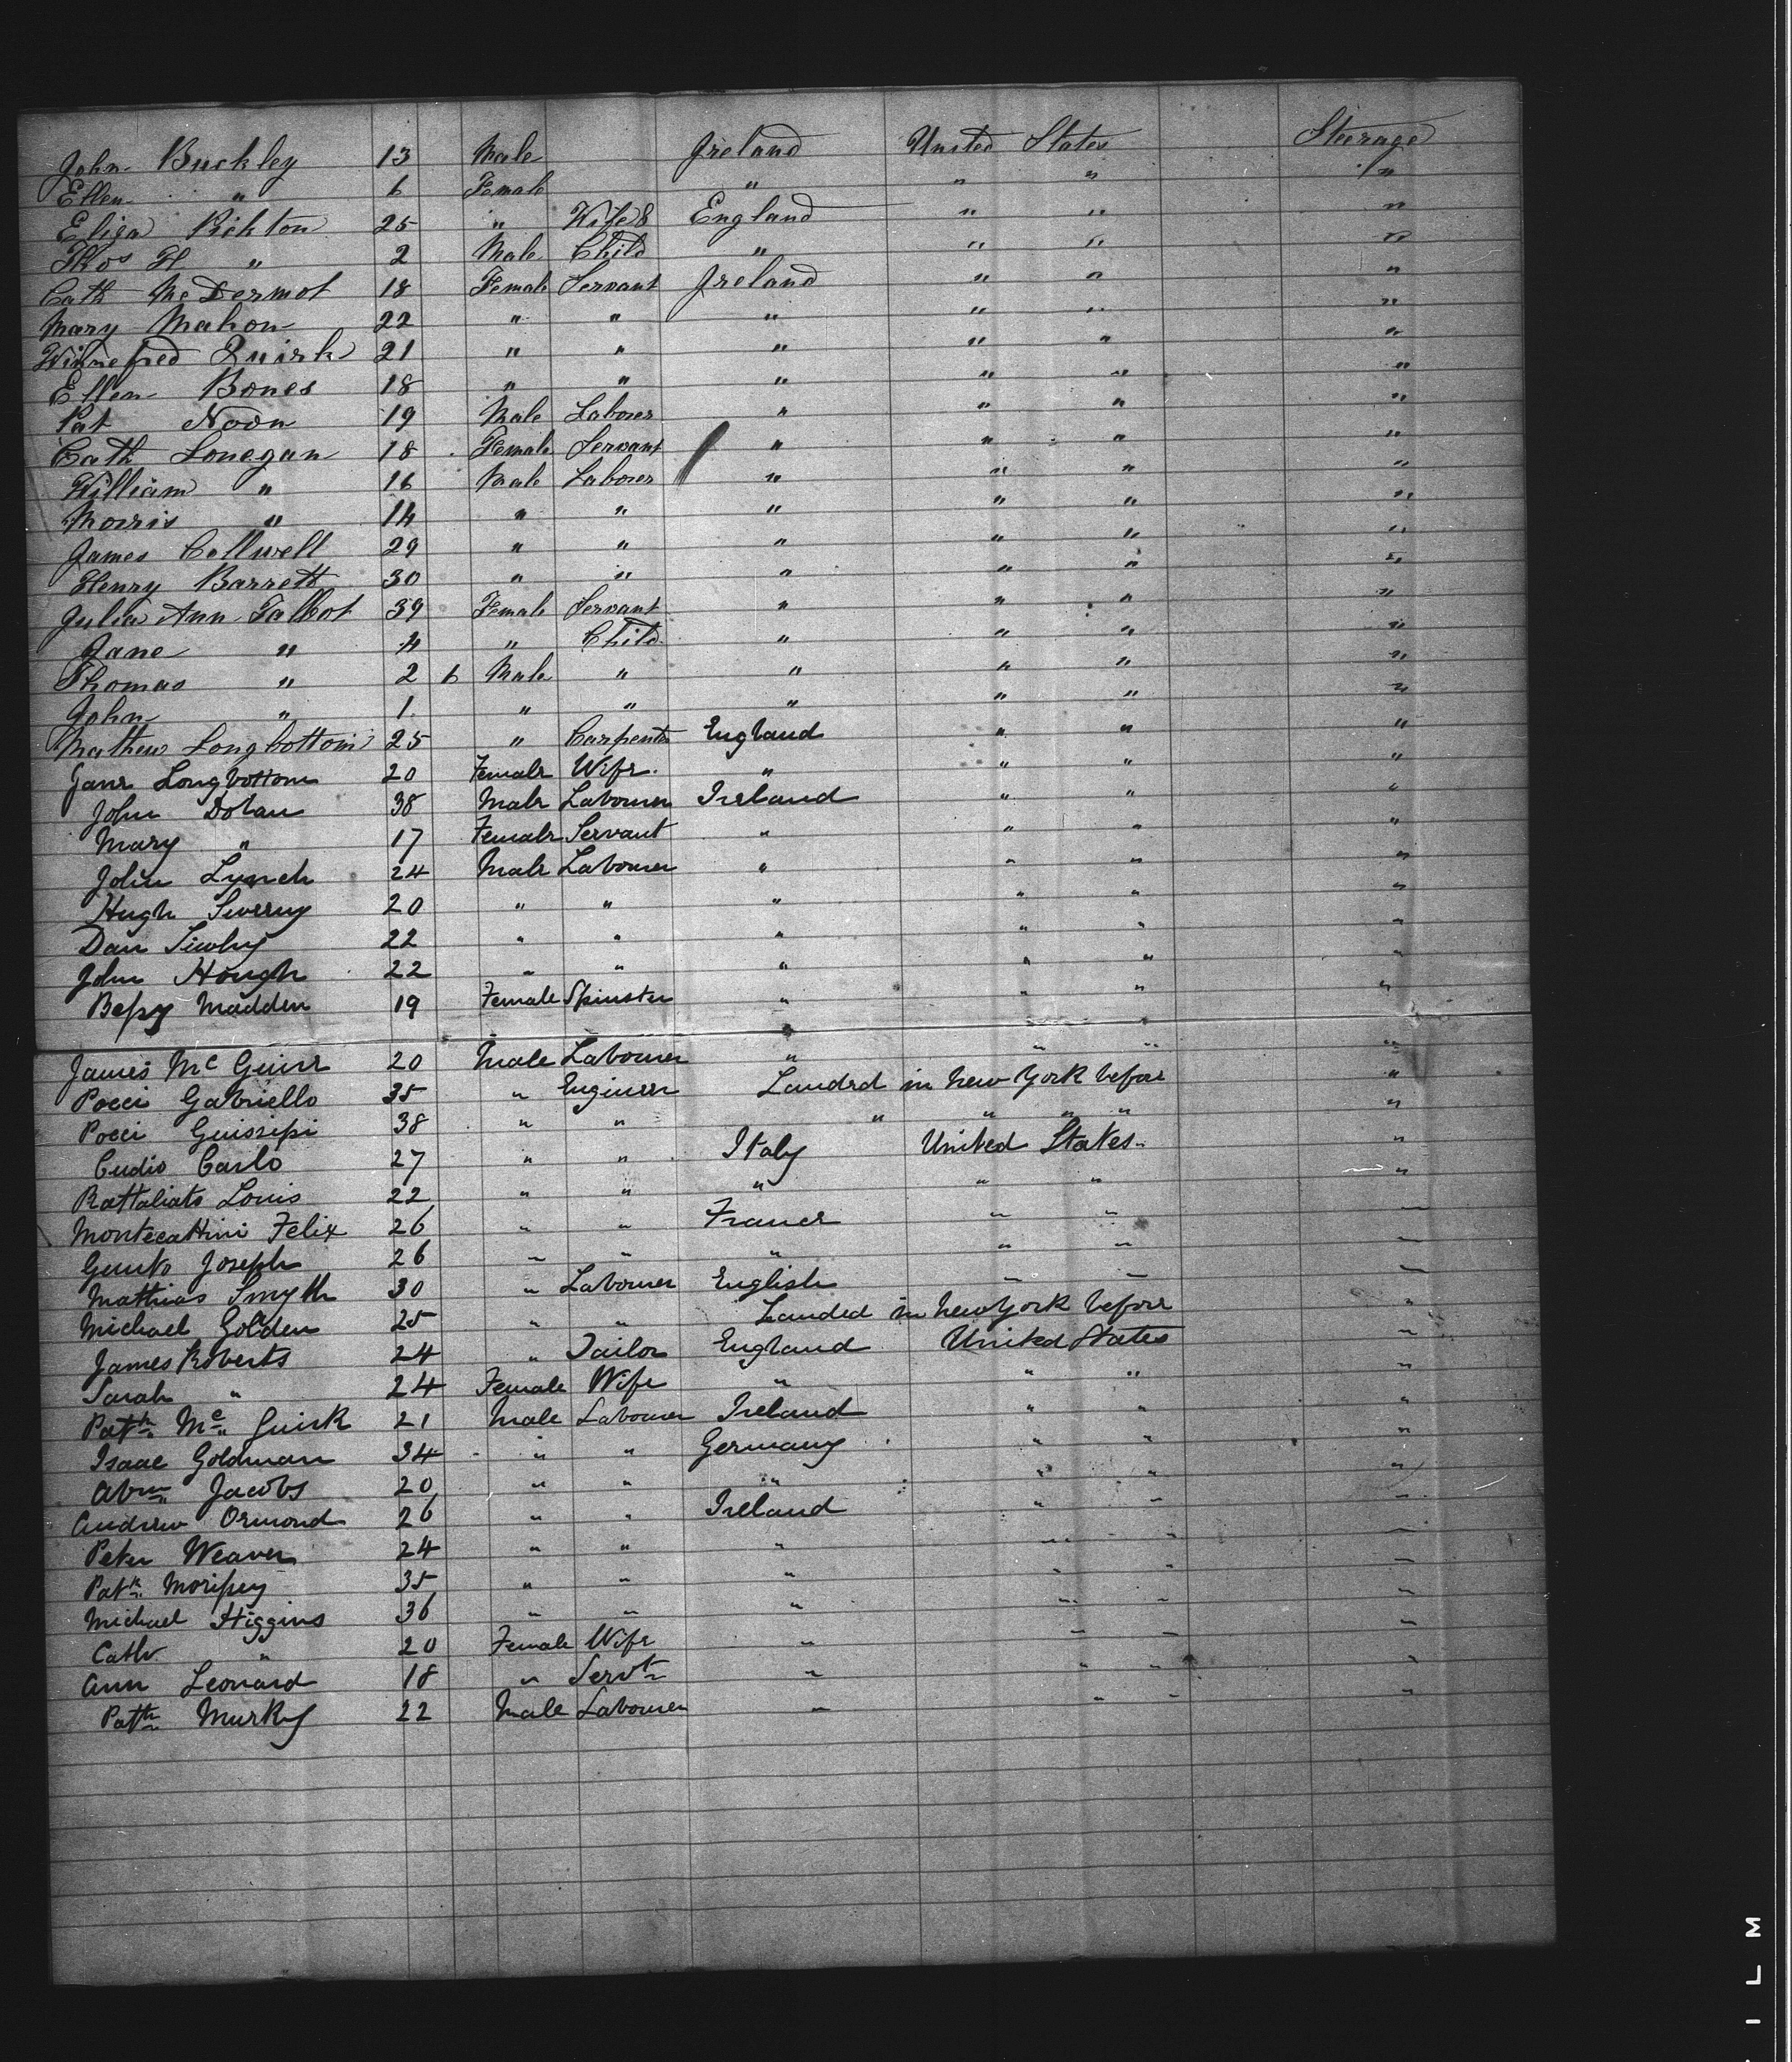 John Buckley 13 Male Ireland United States Steerage
Ellen " 6 Female " " " "
Eliza Rickton 25 " Wife & England " " "
Thos H " 2 Male Child " " " "
Cath McDermot 18 Female Servant Ireland " " "
Mary Mahon 22 " " " " " "
Winnefred Quirk 21 " " " " " "
Ellen Bones 18 " " " " " "
Pat Noon 19 Male Laborer " " " "
Cath Lonegan 18 Female Servant " " " "
William " 16 Male Laborer " " " "
Morris " 14 " " " " " "
James Collwell 29 " " " " " "
Henry Barrett 30 " " " " " "
Julia Ann Talbot 39 Female Servant " " " "
Jane " 4 " Child " " " "
Thomas " 2 6 Male " " " " "
John " 1 " " " " " "
Mathew Longbottom 25 " Carpenter England " " "
Jane Longbottom 20 Female Wife " " " "
John Dolan 38 Male Labourer Ireland " " "
Mary " 17 Female Servant " " " "
John Lynch 24 Male Labourer " " " "
Hugh Sweeny 20 " " " " " "
Dan 22 " " " " " "
John Hough 22 " " " " " "
Bessy Madden 19 Female Spinster " " " "
James Mc Guire 20 Male Labourer " " " "
Pocci Gabriello 35 " Engineer Landed in New York before "
Pocci Guissipi 38 " " " " " " "
Cudio Carlo 27 " " Italy United States "
Rattaliato Louis 22 " " " " " "
Montecattini Felix 26 " " France " " "
Joseph 26 " " " " " "
Mathias Smyth 30 " Labourer English " " "
Michael Golden 25 " " Landed in New York before "
James Roberts 24 " Tailor England United States "
Sarah " 24 Female Wife " " " "
Patk Mc Guirk 21 Male Labourer Ireland " " "
Isaac Goldman 34 " " Germany " " "
Abm Jacobs 20 " " " " " "
Andrew Ormond 26 " " Ireland " " "
Peter Weaver 24 " " " " " "
Patk Morissy 35 " " " " " "
Michael Higgins 36 " " " " " "
Cath " 20 Female Wife " " " "
Ann Leonard 18 " Servt " " " "
Patk Murky 22 Male Labourer " " " "
I L M